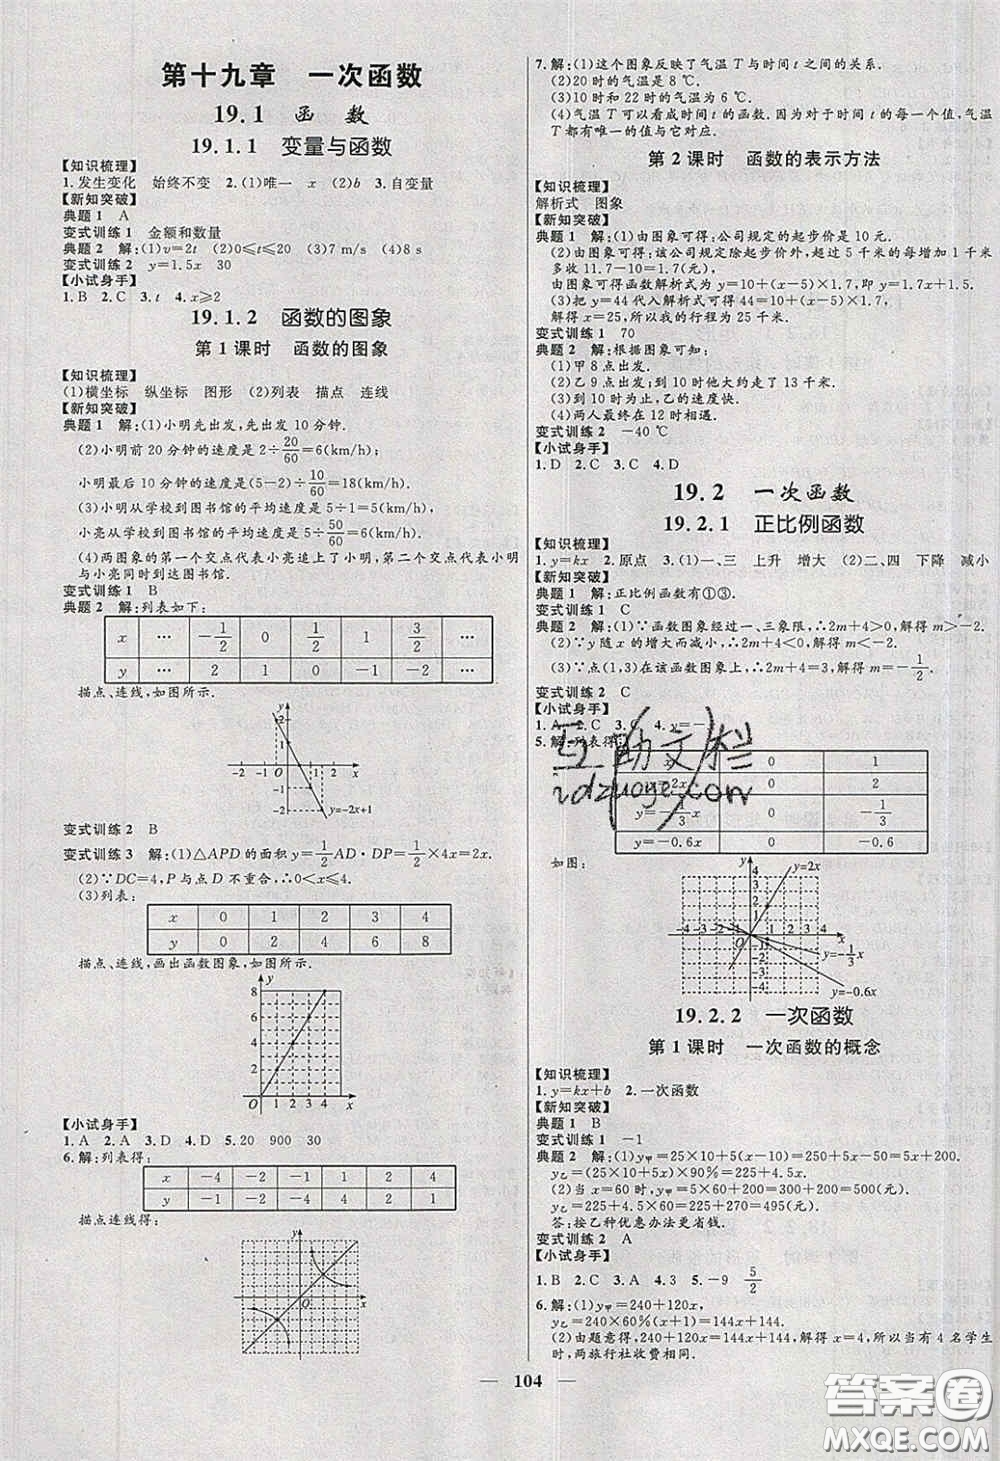 第十九章 一次函数
19.1 函 数
19.1.1 变量与函数
【知识梳理】
1.发生变化 始终不变 2.(1)唯一 x (2)b 3.自变量
【新知突破】
典题1 A
变式训练1 金额和数量
典题2 解:(1)v=2t (2)0≤t≤20 (3)7 m/s (4)8 s
变式训练2 y=1.5x 30
【小试身手】
1.B 2.C 3.t 4.x≥2
19.1.2 函数的图象
第1课时 函数的图象
【知识梳理】
(1)横坐标 纵坐标 图形 (2)列表 描点 连线
【新知突破】
典题1 解:(1)小明先出发,先出发10分钟.
(2)小明前20分钟的速度是2÷20/60=6(km/h)
小明最后10分钟的速度是(5-2)÷10/60=18(km/h)
(3)小明从学校到图书馆的平均速度是5÷1=5(km/h)
小亮从学校到图书馆的平均速度是5÷50/60=6(km/h)
(4)两图象的第一个交点代表小亮追上了小明,第二个交点代表小明
与小亮同时到达图书馆.
变式训练1 D
典题2 解:列表如下:
x … -1/2 0 1/2 1 3/2 …
y … 2 1 0 -1 -2 …
描点、连线,如图所示.
y
2
1
-2 -1 O 1 2 x
-1
-2 y=-2x+1
变式训练2 B
变式训练3 解:(1)△APD的面积y=1/2AD·DP=1/2×4x=2x.
(2)∵DC=4,P与点D不重合,∴0<x≤4.
(3)列表:
x 0 1 2 3 4
y 0 2 4 6 8
描点、连线,画出函数图象,如图所示.
y
8
6
4
2
O 1 2 3 4 x
【小试身手】
1.A 2.A 3.D 4.D 5.20 900 30
6.解:列表得:
x -4 -2 -1 1 2 4
y -1 -2 -4 4 2 1
描点连线得:
y
O x
7.解:(1)这个图象反映了气温T与时间t之间的关系.
(2)20时的气温是8 ℃.
(3)10时和22时的气温为6 ℃.
(4)气温T可以看成时间t的函数.因为对于时间t的每一个值,气温
T都有唯一的值与它对应.
第2课时 函数的表示方法
【知识梳理】
解析式 图象
【新知突破】
典题1 解:(1)由图象可得:公司规定的起步价是10元.
(2)由图象可得:该公司规定除起步价外,超过5千米的每增加1千米
多收11.7-10=1.7(元),
由图象可得函数解析式为y=10+(x-5)×1.7,即y=1.7x+1.5.
(3)把y=44代入解析式可得44=10+(x-5)×1.7,
解得:x=25,所以我的行程为25千米.
变式训练1 70
典题2 解:根据图象可知:
(1)甲8点出发;
(2)乙9点出发;到10时他大约走了13千米.
(3)到10时为止,乙的速度快.
(4)两人最终在12时相遇.
变式训练2 -40 ℃
【小试身手】
1.D 2.C 3.C 4.D
19.2 一次函数
19.2.1 正比例函数
【知识梳理】
1.y=kx 2.原点 3.(1)一、三 上升 增大 (2)二、四 下降 减小
【新知突破】
典题1 解:正比例函数有①③.
变式训练1 C
典题2 解:(1)∵函数图象经过一、三象限,∴2m+4>0,解得m>-2.
(2)∵y随x的增大而减小,∴2m+4<0,解得m<-2.
(3)∵点(1,3)在该函数图象上,∴2m+4=3,解得m=-1/2.
变式训练2 C
【小试身手】
1.A 2.C 3.C 4.y=-
5.解:列表得:
x 0 1
y=2x 0 2
y=-1/3x 0 -1/3
y=-0.6x 0 -0.6
如图:
y
y=2x
4
3
2
1
-4 -3 -2 -1 O 1 2 3 4 x
-1
-2
-3
-4
y=-1/3x
y=-0.6x
互助文档
idzuoye.com
19.2.2 一次函数
第1课时 一次函数的概念
【知识梳理】
1.y=kx+b 2.一次函数
【新知突破】
典题1 B
变式训练1 -1
典题2 解:(1)y甲=25×10+5(x-10)=250+5x-50=5x+200,
y乙=(25×10+5x)×90%=225+4.5x.
(2)当x=60时,y甲=5×60+200=300+200=500(元),
y乙=225+4.5×60=225+270=495(元),
答:按乙种优惠办法更省钱.
变式训练2 A
【小试身手】
1.B 2.C 3.A 4.3 5.-9 5/2
6.解:(1)y甲=240+120x,
y乙=240×60%(x+1)=144x+144;
(2)由题意得,240+120x=144x+144,解得x=4,所以当有4名学生
时,两旅行社收费相同.
104
答案圈
MXQE.COM